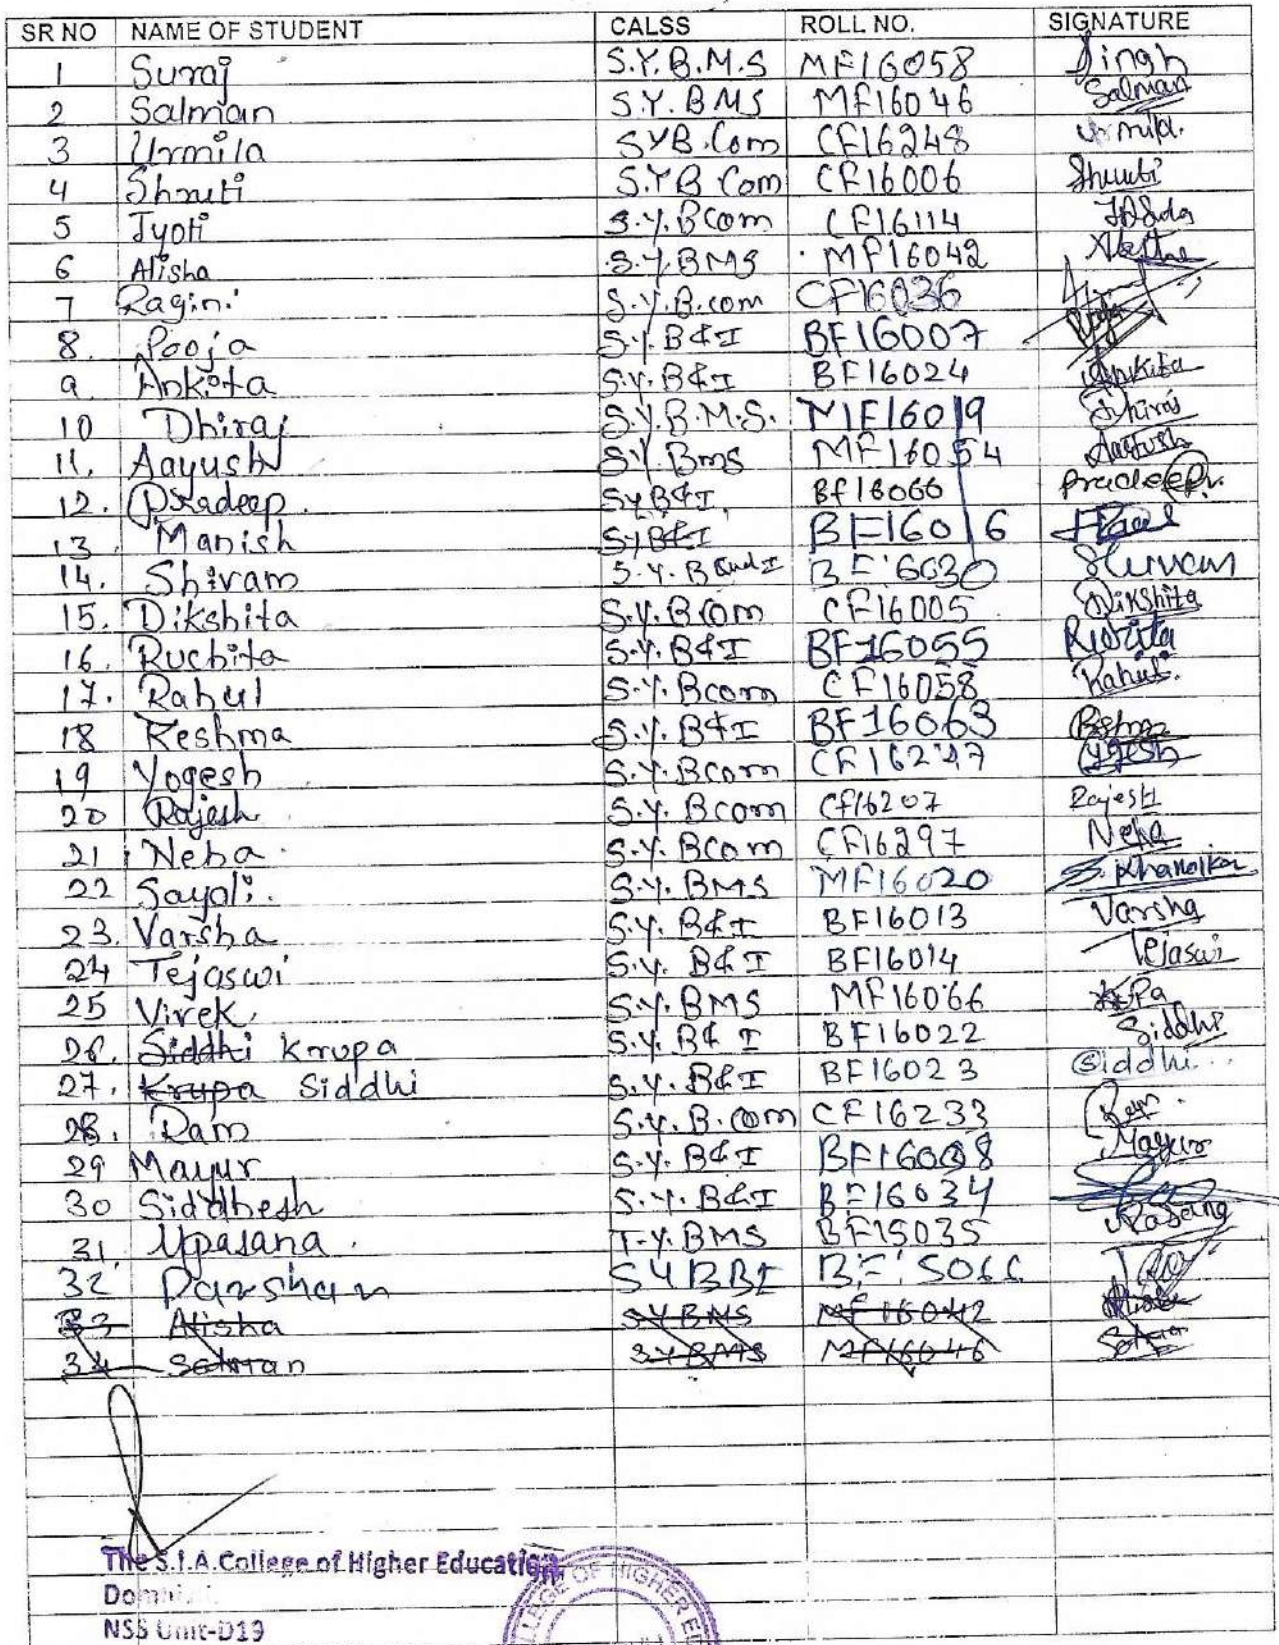 SR NO NAME OF STUDENT CALSS ROLL NO. SIGNATURE
1 Suraj S.Y.B.M.S MF16058 Singh
2 Salman S.Y.BMS MF16046 Salman
3 Urmila SYB.Com CF16248 urmila.
4 Shruti S.Y B Com CF16006 Shruti
5 Jyoti S.Y.Bcom CF16114
6 Alisha S.Y.BMS MF16042
7 Ragini S.Y.B.com CF16036
8. Pooja S.Y.B&I BF16007 Pooja
9. Ankita S.Y.B&I BF16024 Ankita
10 Dhiraj S.Y.B.M.S. MF16019 Dhiraj
11. Aayush S.Y.Bms MF16054 Aayush
12. Pradeep. SYB&I, BF16066 Pradeep
13 Manish SYB&I BF16016
14. Shivam S.Y.B and I BF16030 Shivam
15. Dikshita S.Y.Bcom CF16005 Dikshita
16. Ruchita S.Y.B&I BF16055
17. Rahul S.Y.Bcom CF16058 Rahul.
18 Reshma S.Y.B&I BF16063
19 Yogesh S.Y.Bcom Yogesh
20 Rajesh S.Y.Bcom CF16207 Rajesh
21 Neha. S.Y.Bcom CF16297 Neha
22 Sayali. S.Y.BMS MF16020 S. Khanolkar
23. Varsha S.Y.B&I BF16013 Varsha
24 Tejaswi S.Y.B&I BF16014 Tejaswi
25 Vivek. S.Y.BMS MF16066
26. Siddhi Krupa S.Y.B&I BF16022 Siddhi
27. Krupa Siddhi S.Y.B&I BF16023 Siddhi...
28. Ram S.Y.B.com CF16233 Ram.
29 Mayur S.Y.B&I BF16008 Mayur
30 Siddhesh S.Y.B&I BF16034
31. Upasana. T.Y.BMS BF15035 Upasana
32 Darshan SYBBI
33 Alisha SYBMS MF16042 Alisha
34 Salman SYBMS MF16046 Salman
The S.I.A.College of Higher Education
NSS Unit-D19
COLLEGE OF HIGHER